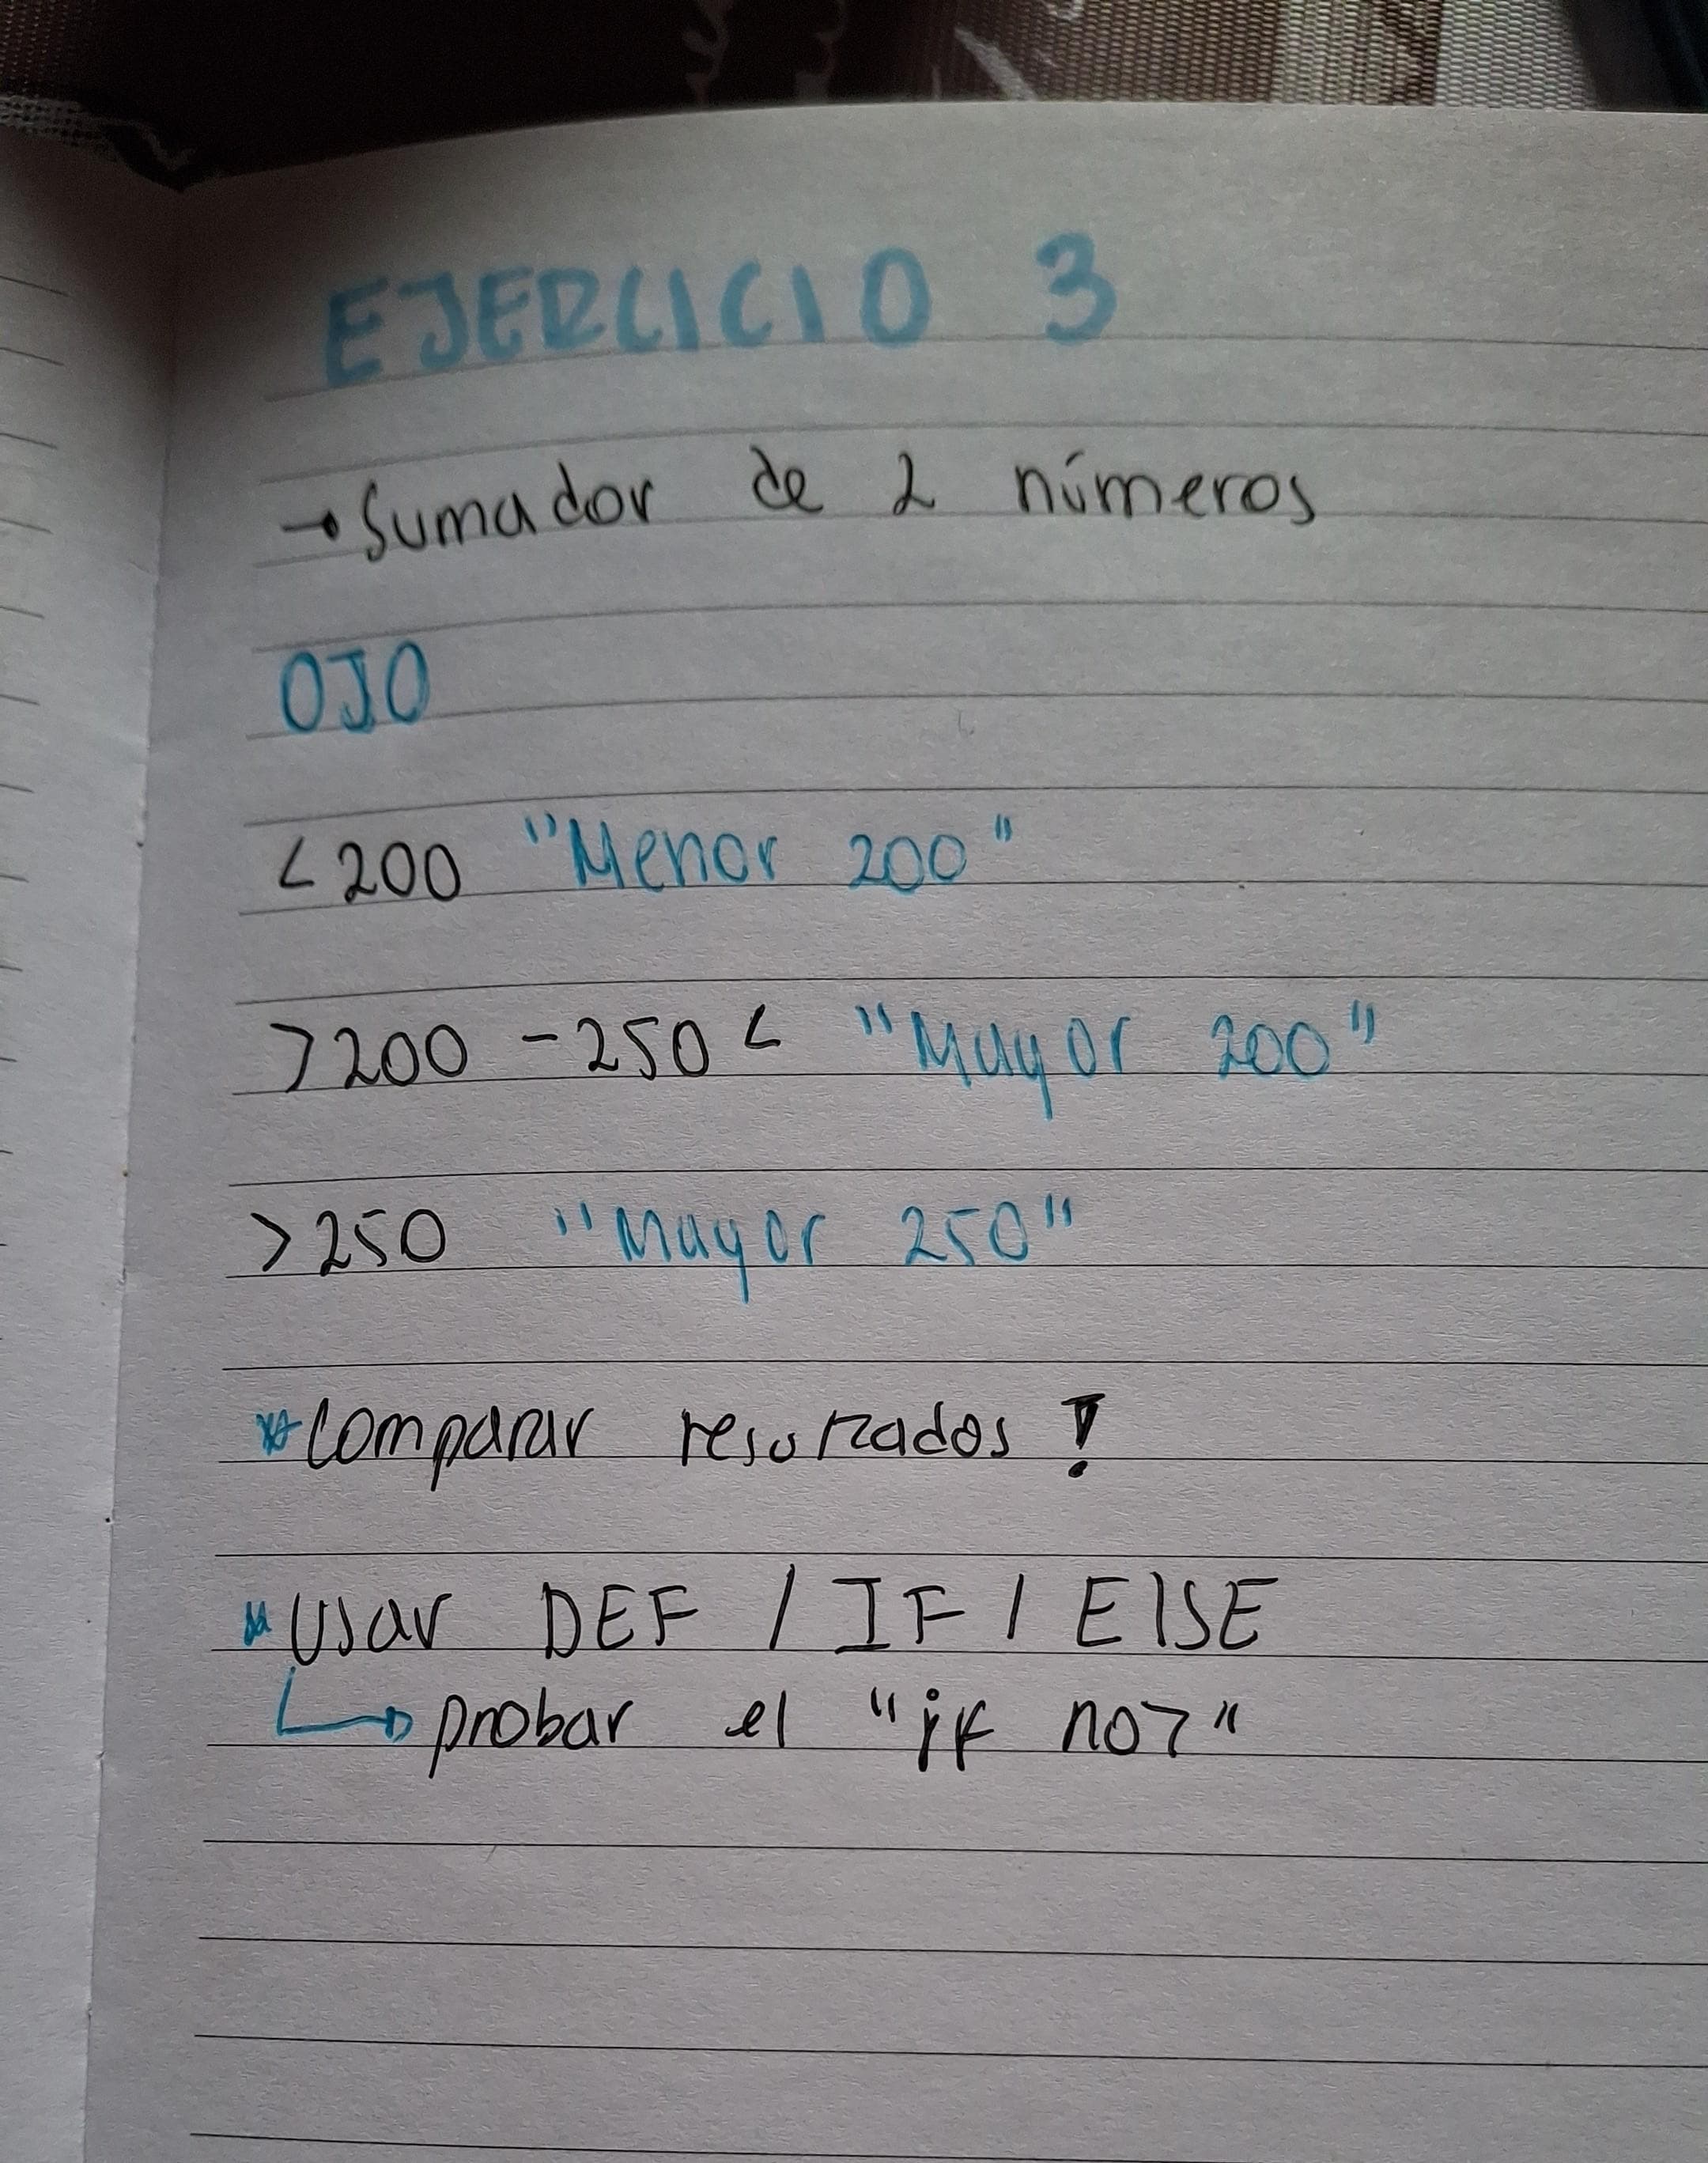 EJERCICIO 3
→ Sumador de 2 números
OJO
<200 "Menor 200"
>200 - 250< "Mayor 200"
>250 "Mayor 250"
* Comparar resultados!
* Usar DEF / IF / ElSE
↳ probar el "if not"